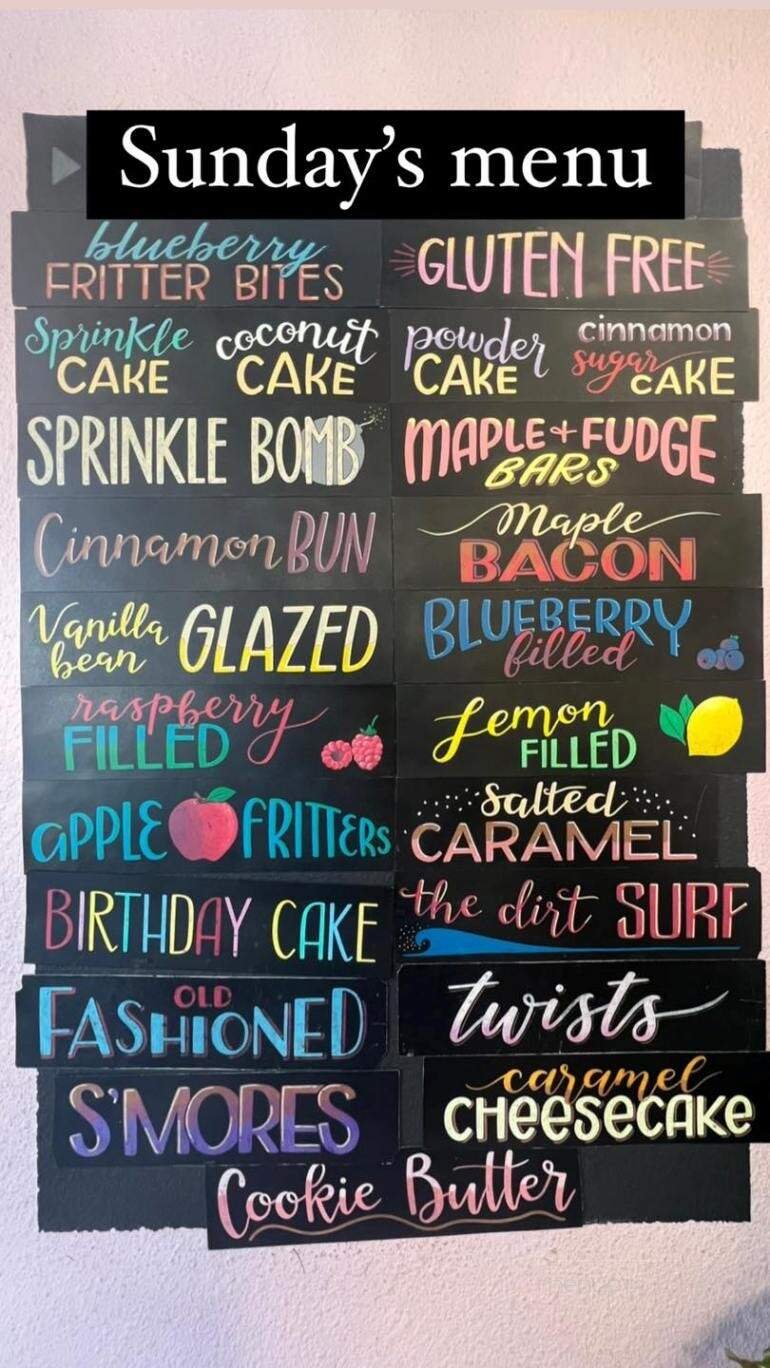 Sunday's menu
blueberry
FRITTER BITES
GLUTEN FREE
Sprinkle
CAKE
coconut
CAKE
powder
CAKE
cinnamon
sugar
CAKE
SPRINKLE BOMB
MAPLE + FUDGE
BARS
Cinnamon BUN
Maple
BACON
Vanilla
bean
GLAZED
BLUEBERRY
filled
raspberry
FILLED
Lemon
FILLED
APPLE FRITTERS
Salted
CARAMEL
BIRTHDAY CAKE
the dirt SURF
OLD
FASHIONED
twists
S'MORES
caramel
CHEESECAKE
Cookie Butter